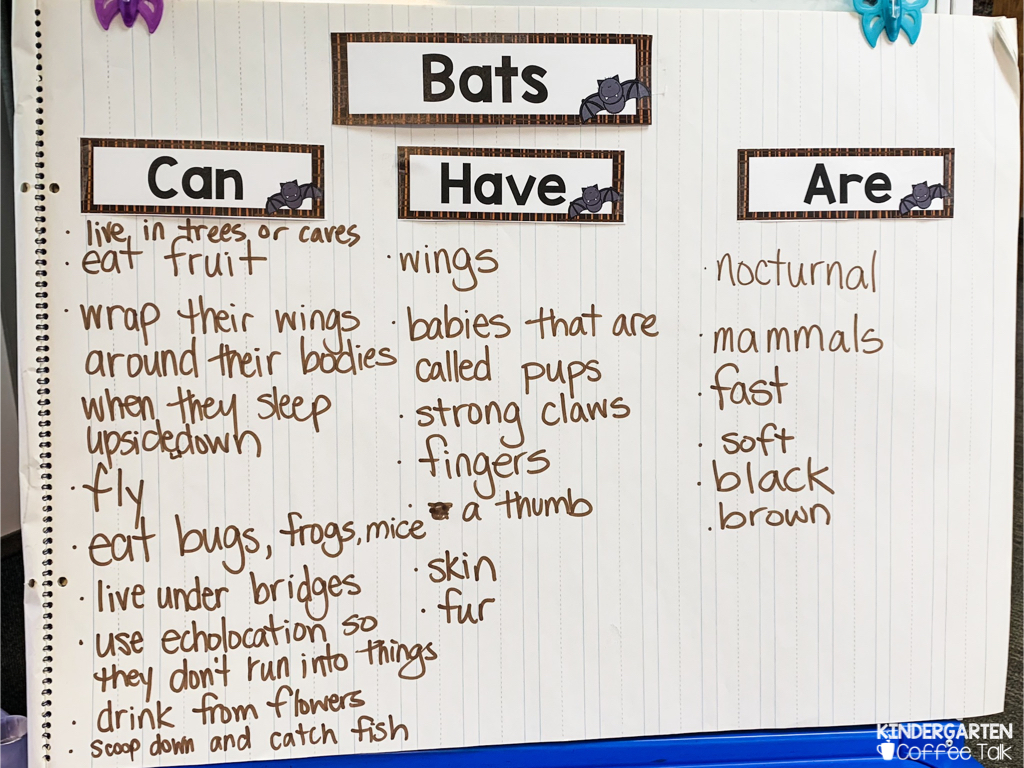 Bats
Can
· live in trees or caves
· eat fruit
· wrap their wings
around their bodies
when they sleep
upsidedown
· fly
· eat bugs, frogs, mice
· live under bridges
· use echolocation so
they don't run into things
· drink from flowers
· scoop down and catch fish
Have
· wings
· babies that are
called pups
· strong claws
· fingers
· a thumb
· skin
· fur
Are
· nocturnal
· mammals
· fast
· soft
· black
· brown
KINDERGARTEN
Coffee Talk